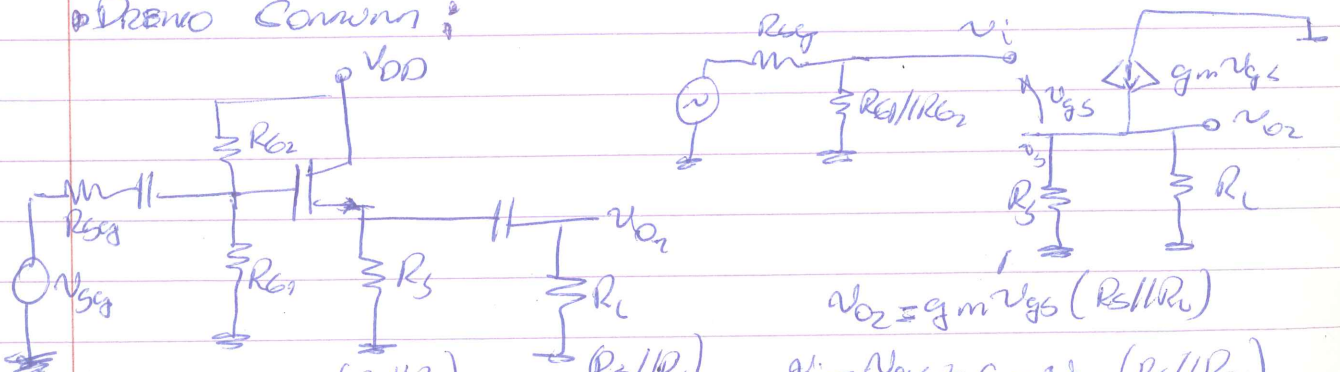 • DRENO COMUM:
VDD
RG2
Rsg
RG1
vsg
RS
RL
vo2
Rsg
vi
RG1//RG2
vgs
gmvgs
vo2
vs
RS
RL
vo2 = gm vgs (RS//RL)
(RS//RL)